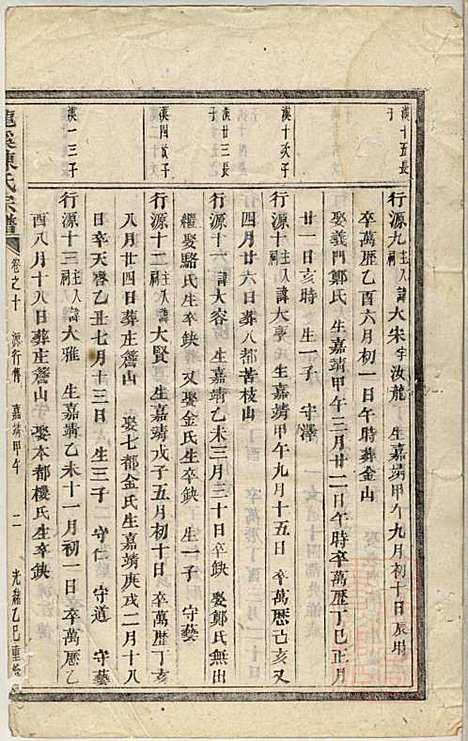 漢十五長子
行源九主人祠諱大宋字汝龍 生嘉靖甲午九月初十日辰時
卒萬歷乙酉六月初一日午時葬金山
娶義門鄭氏 生嘉靖甲午三月廿一日午時卒萬歷丁巳正月
廿一日亥時 生一子 守澤
漢十次子
行源十主人祠諱大亨 生嘉靖甲午九月十五日 卒萬歷己亥又
四月廿六日葬八都苦枝山
漢廿三長子
行源十六諱大容 生嘉靖乙未三月三十日卒缺 娶鄭氏無出
繼娶駱氏生卒缺 又娶金氏生卒缺 生一子 守藝
漢四次子
行源十二主人祠諱大賢 生嘉靖戊子五月初十日 卒萬歷丁亥
八月廿四日葬庄詹山 娶七都金氏生嘉靖庚戌二月十八
日辛天啓乙丑七月十三日 生三子 守仁 守道 守藝
漢一三子
行源十三主人祠諱大雅 生嘉靖乙未十一月初一日卒萬歷乙
酉八月十八日葬庄詹山 娶本都樓氏生卒缺
龍溪陳氏宗譜 卷之十 源行傳 嘉靖甲午 二 光緒乙巳重修